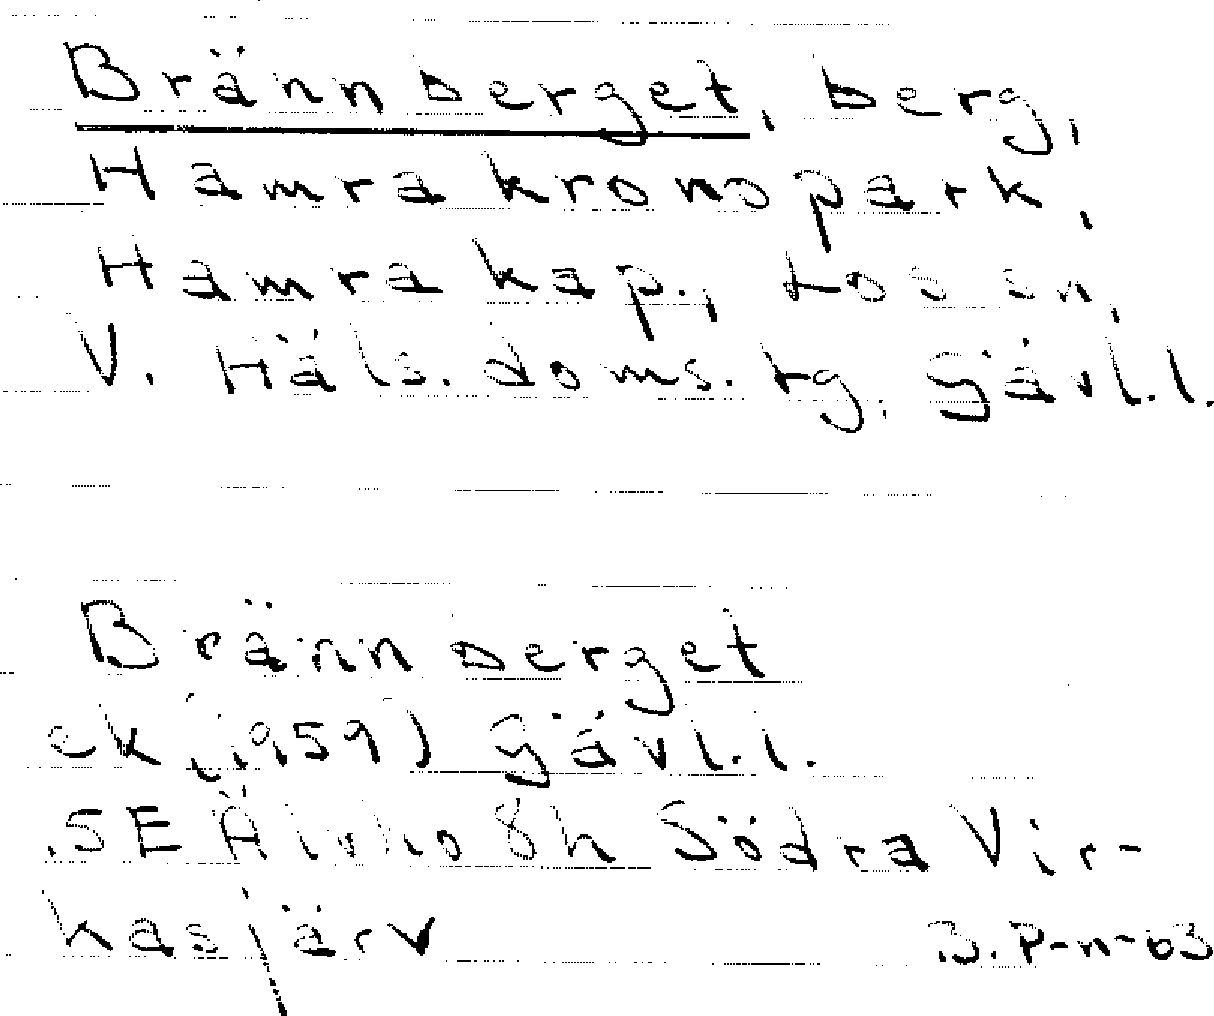 Brännberget, berg,
Hamra kronopark,
Hamra kap., Los sn,
V. Häls. doms. tg. Gävl.l.
Brännberget
ek (1959) Gävl.l.
SE Älvho 8h Södra Vir-
kasjärv
B. P-n-63